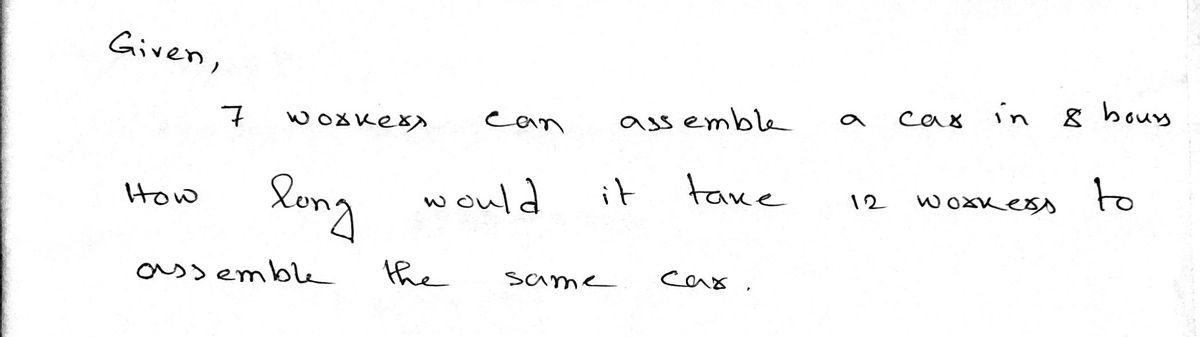 Given,
7 workers can assemble a car in 8 hours
How long would it take 12 workers to
assemble the same car.